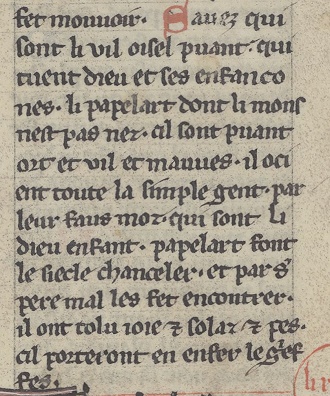 fet mouuoir. Sauez qui
sont li vil oisel puant. qui
tuent dieu et ses enfanco
nes. li papelart dont li mons
nest pas nez. cil sont puant
ort et vil et mauues. il oci
ent toute la simple gent. par
leur faus moz. qui sont li
dieu enfant. papelart font
le siecle chanceler. et par s
pere mal les fet encontrer.
il ont tolu ioie ⁊ solaz ⁊ pes.
cil porteront en enfer le g̾ef
fes.